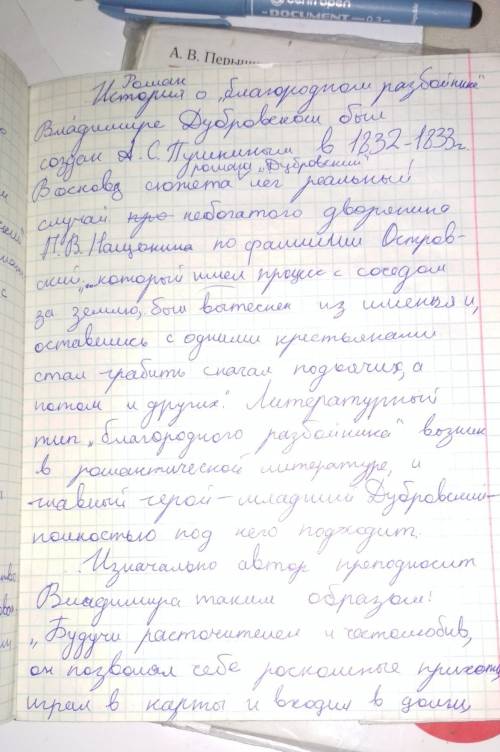 centropen
DOCUMENT
А. В. Перыш
Роман
История о „благородном разбойнике"
Владимире Дубровском был
создан А. С. Пушкиным в 1832-1833г.
романа „Дубровский"
В основе сюжета лег реальный
случай про небогатого дворянина
П. В. Нащокина по фамилии Остров-
ский „...который имел процес с соседом
за землю, был вытеснен из именья и,
оставшись с одними крестьянами
стал грабить сначал подьячих, а
потом и других." Литературный
тип „благородного разбойника" возник
в романтической литературе, и
главный герой - младший Дубровский -
полностью под него подходит.
Изначально автор преподносит
Владимира таким образом:
„Будучи расточителен и честолюбив,
он позволял себе роскошные прихоти,
играл в карты и входил в долги,